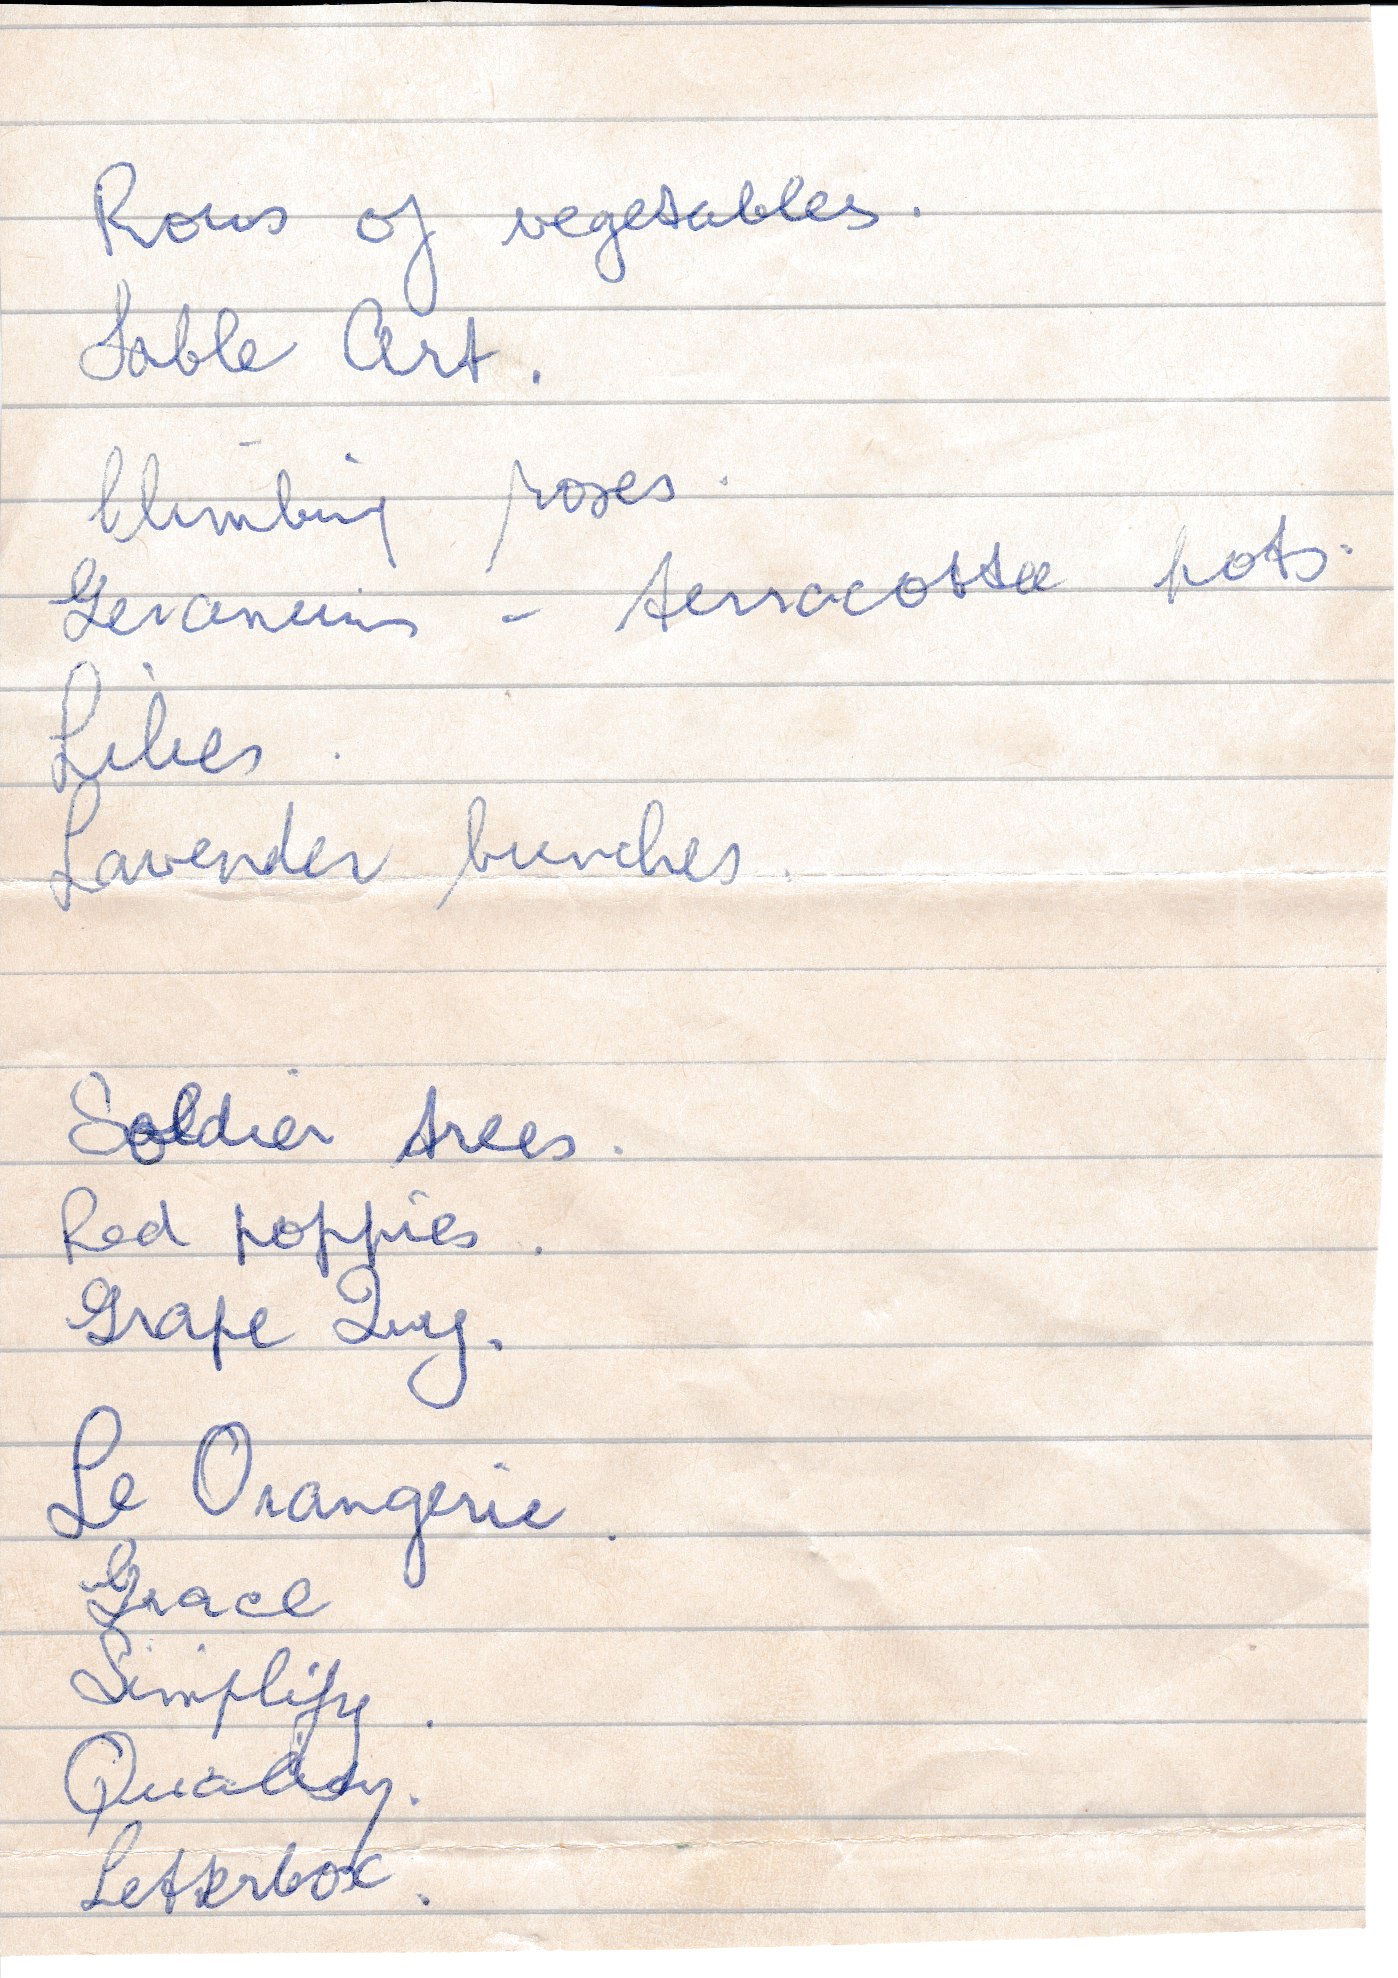 Rows of vegetables.
Table Art.
Climbing roses.
Geraniums - terracotta pots.
Lilies.
Lavender bunches.
Soldier trees.
Red poppies.
Grape Ivy.
Le Orangerie.
Grace
Simplify.
Quality.
Letterbox.